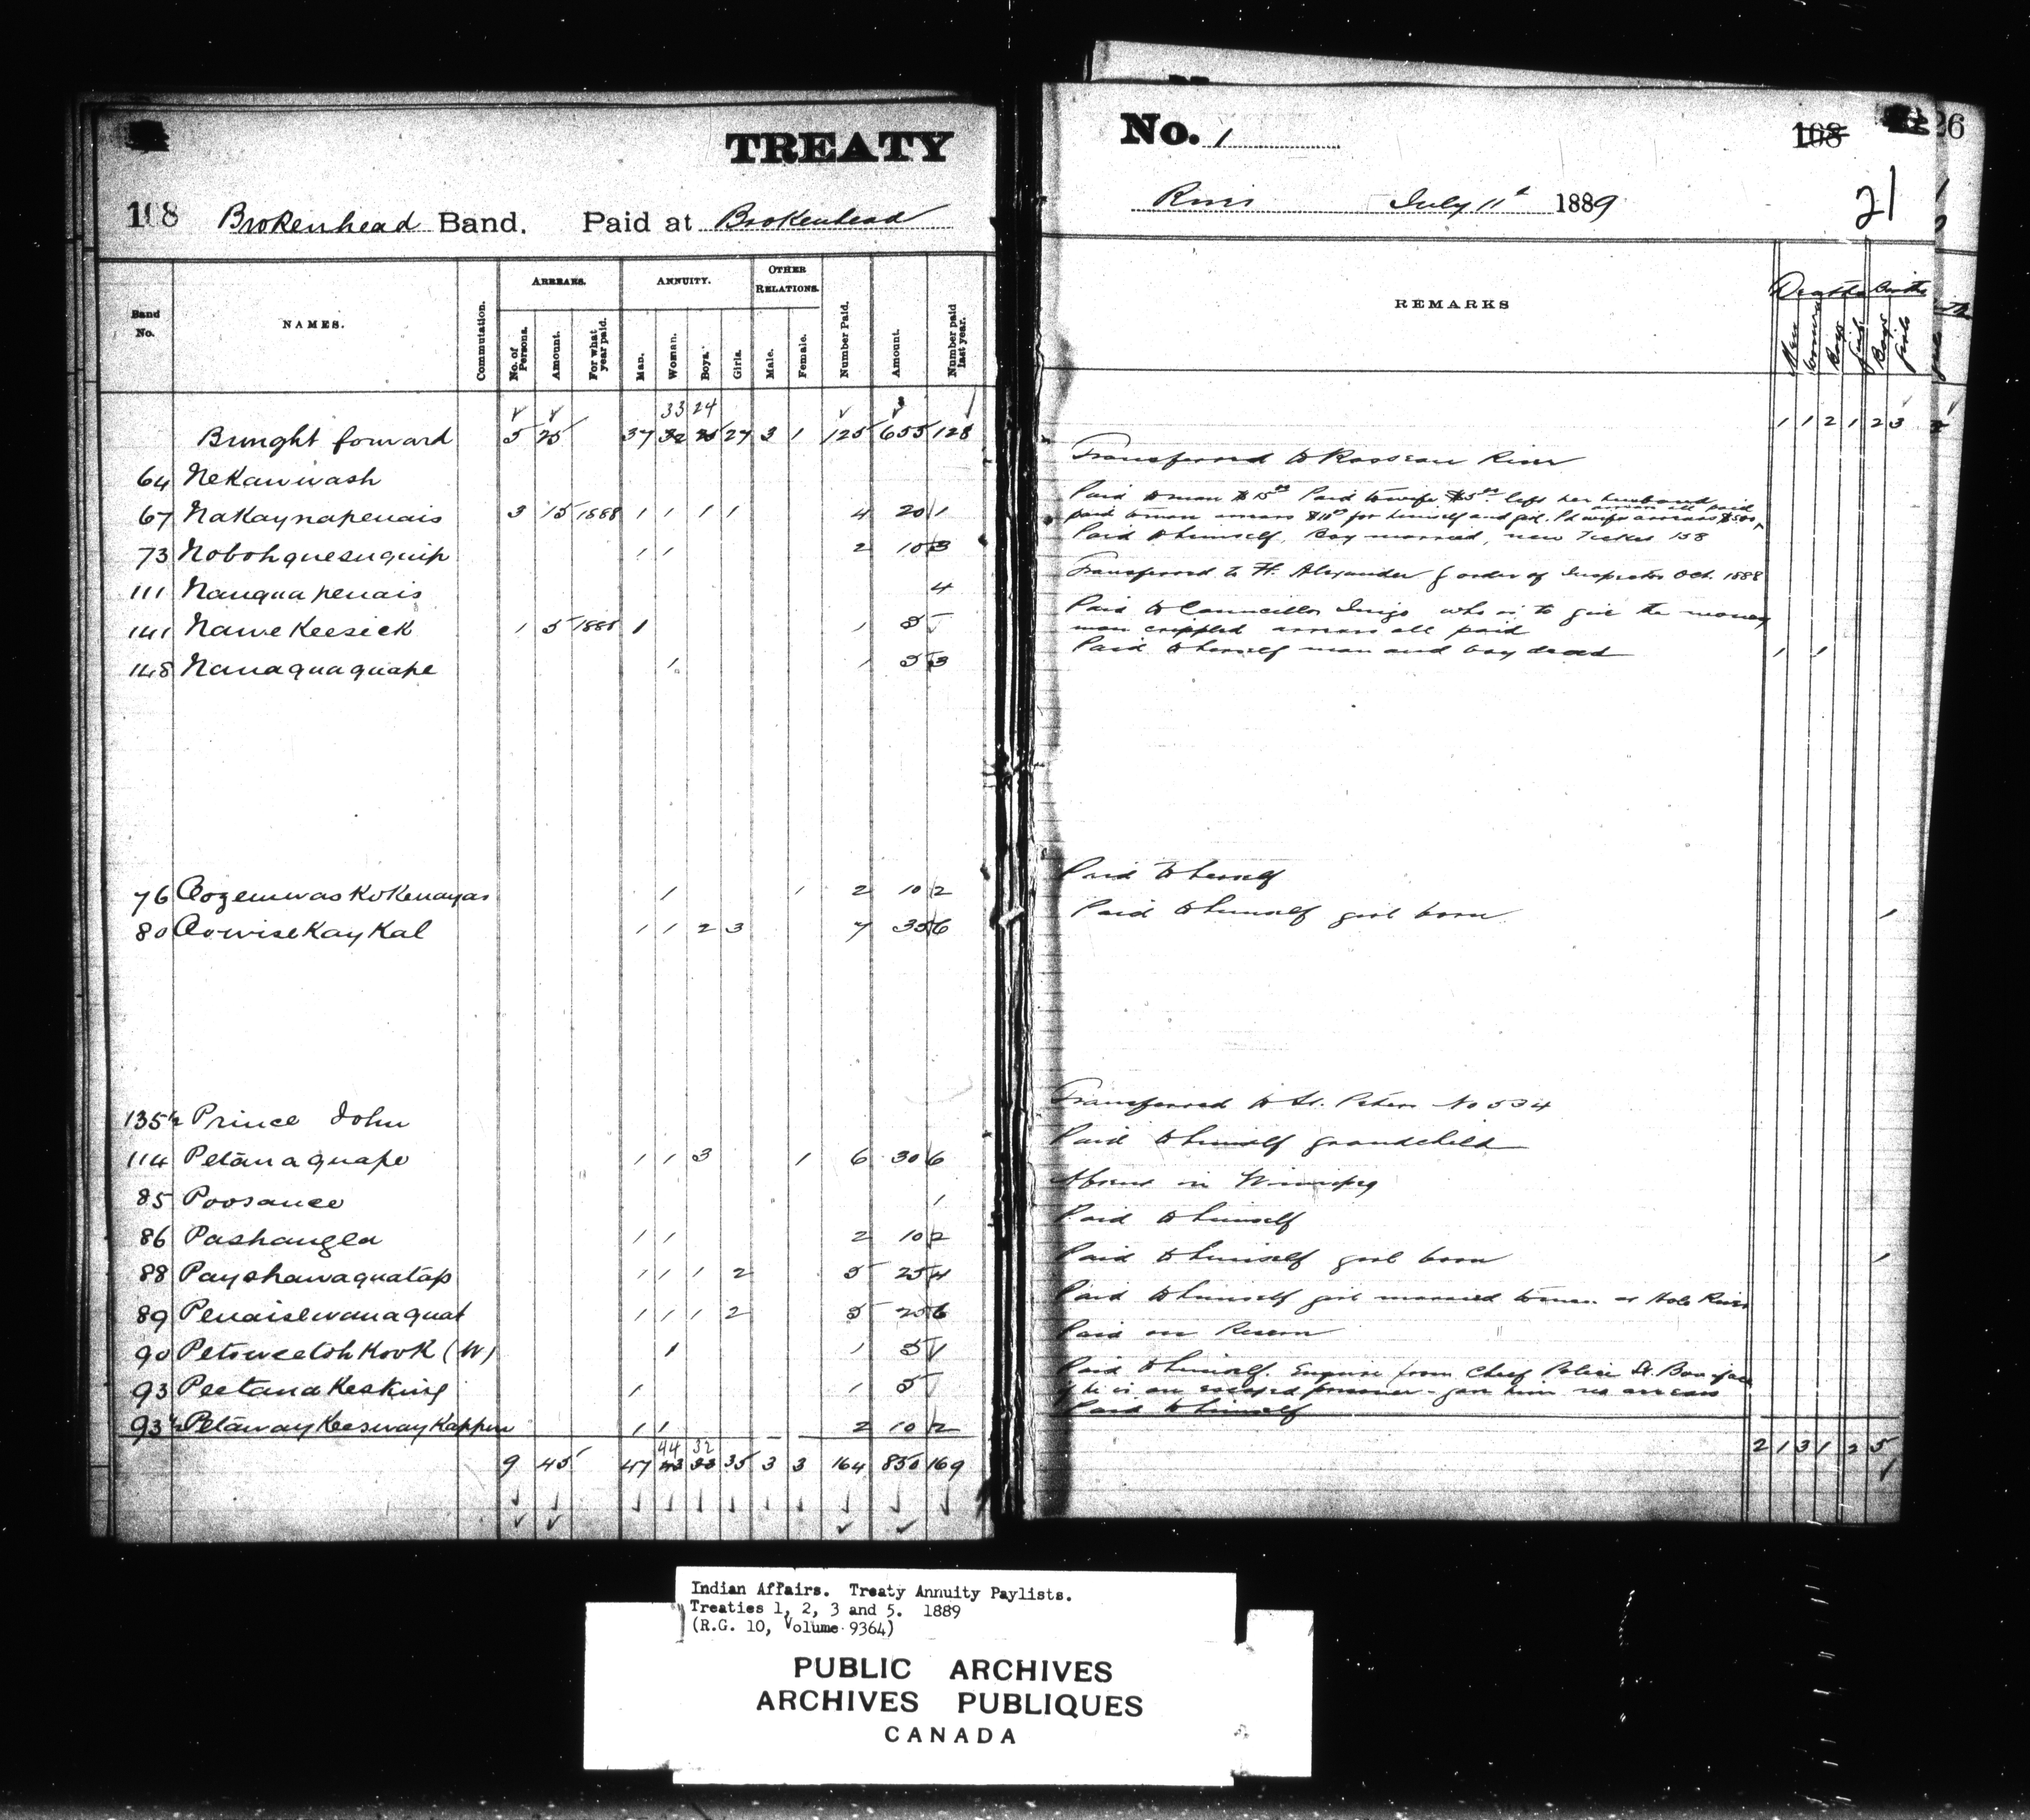 TREATY
No. 1
168 26
108 Brokenhead Band. Paid at Brokenhead
River July 11th 1889
21
Band No. NAMES. Commutation. ARREARS. No. of Persons. Amount. For what year paid. ANNUITY. Man. Woman. Boys. Girls. OTHER RELATIONS. Male. Female. Number Paid. Amount. Number paid last year.
REMARKS Deaths Births Men Women Boys Girls Boys Girls
33 24
Brought forward 5 25 37 32 25 27 3 1 125 655 128
1 1 2 1 2 3
64 Nekawwash
Transferred to Rosseau River
67 Nakaynapenais 3 15 1888 1 1 1 1 4 20 1
Paid to man $15.00 Paid to wife $5.00 left her husband arrears all paid
paid to man arrears $10.00 for himself and girl. Pd wife arrears $5.00
73 Nobohquesuquip 1 1 2 10 3
Paid to himself, Boy married, new Ticket 158
111 Nanquapenais 4
Transferred to Ft. Alexander order of Inspector Oct. 1888
141 Nawekeesick 1 5 1888 1 1 5
Paid to Councillor who is to give the money
man crippled arrears all paid
148 Nanaquaquape 1 1 5 3
Paid to herself man and boy dead 1 1
76 Oozemwaskokenayas 1 1 2 10 2
Paid to herself
80 Oowisekaykal 1 1 2 3 7 35 6
Paid to himself girl born 1
135½ Prince John
Transferred to St. Peters No 534
114 Petanaquape 1 1 3 1 6 30 6
Paid to himself grandchild
85 Poosance 1
Absent in Winnipeg
86 Pashangea 1 1 2 10 2
Paid to himself
88 Payshawaquatap 1 1 1 2 5 25 4
Paid to himself girl born 1
89 Penaisewanaquat 1 1 1 2 5 25 6
Paid to himself girl married to man at Hole River
90 Petowcetohkook (W) 1 1 5 1
Paid on Reserve
93 Peetanakesking 1 1 5
Paid to himself. Enquire from Chief Police St. Boniface
if he is an escaped prisoner - gave him no arrears
93½ Petawaykeeswaykappow 1 1 2 10 2
Paid to himself
44 32
9 45 47 43 33 35 3 3 164 850 169
2 1 3 1 2 5
Indian Affairs. Treaty Annuity Paylists.
Treaties 1, 2, 3 and 5. 1889
(R.G. 10, Volume 9364)
PUBLIC ARCHIVES
ARCHIVES PUBLIQUES
CANADA